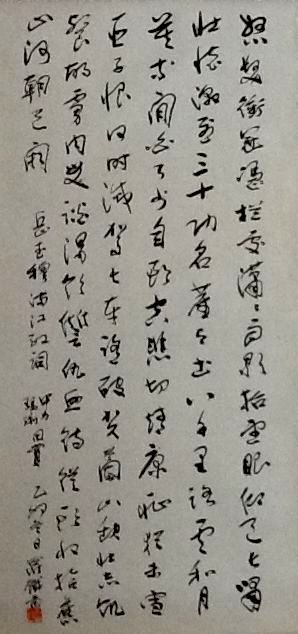 怒髮衝冠憑欄處瀟瀟雨歇抬望眼仰天長嘯
壯懷激烈三十功名塵與土八千里路雲和月
莫等閒白了少年頭空悲切靖康恥猶未雪
臣子恨何時滅駕長車踏破賀蘭山缺壯志飢
餐胡虜肉笑談渴飲匈奴血待從頭收拾舊
山河朝天闕 岳武穆滿江紅詞